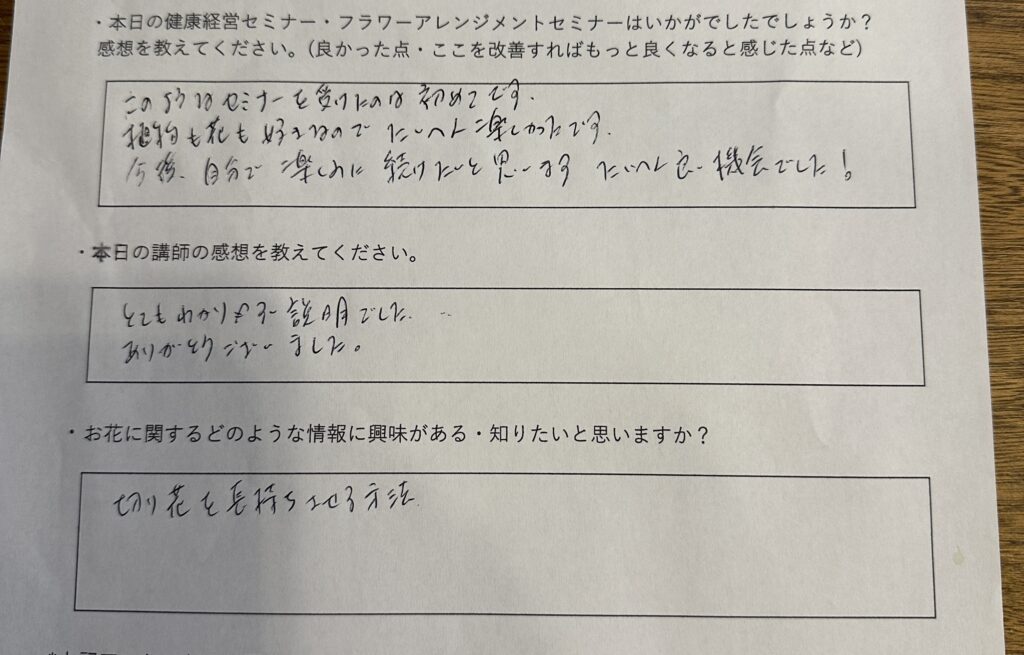 ・本日の健康経営セミナー・フラワーアレンジメントセミナーはいかがでしたでしょうか？
感想を教えてください。（良かった点・ここを改善すればもっと良くなると感じた点など）
このようなセミナーを受けたのは初めてです.
植物も花も好きなので たいへん楽しかったです.
今後、自分で楽しみに続けたいと思います たいへん良い機会でした！
・本日の講師の感想を教えてください。
とてもわかりやすい説明でした.
ありがとうございました。
・お花に関するどのような情報に興味がある・知りたいと思いますか？
切り花を長持ちさせる方法